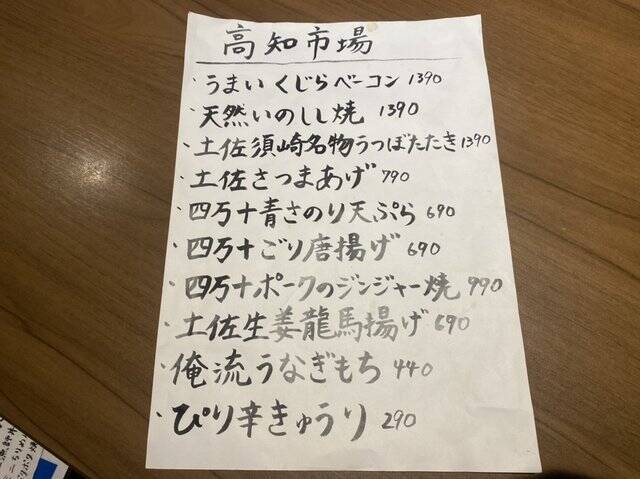 高知市場
・うまいくじらベーコン 1390
・天然いのしし焼 1390
・土佐須崎名物うつぼたたき 1390
・土佐さつまあげ 790
・四万十青さのり天ぷら 690
・四万十ごり唐揚げ 690
・四万十ポークのジンジャー焼 990
・土佐生姜龍馬揚げ 690
・俺流うなぎもち 440
・ぴり辛きゅうり 290